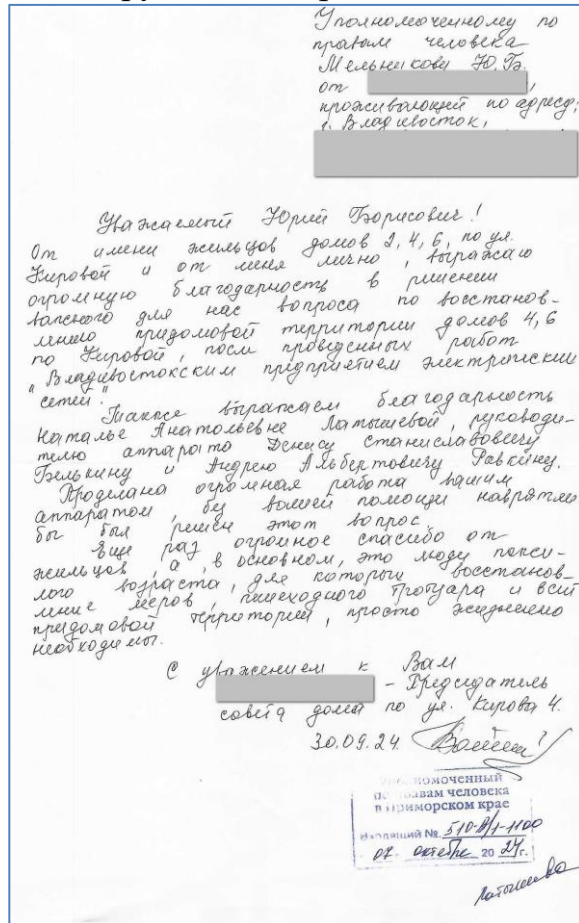 Уполномоченному по
правам человека
Мельникову Ю.Б.
от
проживающей по адресу:
г. Владивосток,
Уважаемый Юрий Борисович!
От имени жильцов домов 2, 4, 6, по ул.
Кировой и от меня лично, выражаю
огромную благодарность в решении
важного для нас вопроса по восстанов-
лению придомовой территории домов 4, 6
по Кировой, после проведенных работ
"Владивостокским предприятием электрических
сетей".
Также выражаем благодарность
Наталье Анатольевне Латышевой, руководи-
телю аппарата Денису Станиславовичу
Белькину и Андрею Альбертовичу Равкину.
Проделана огромная работа вашим
аппаратом, без вашей помощи наврятли
бы был решен этот вопрос.
Еще раз огромное спасибо от
жильцов, а, в основном, это люди пожи-
лого возраста, для которых восстанов-
ление пешеходного тротуара и всей
придомовой территории, просто жизненно
необходимы.
С уважением к Вам
- Председатель
совета дома по ул. Кирова 4.
30.09.24.
Уполномоченный
по правам человека
в Приморском крае
Входящий №
октябре 2024 г.